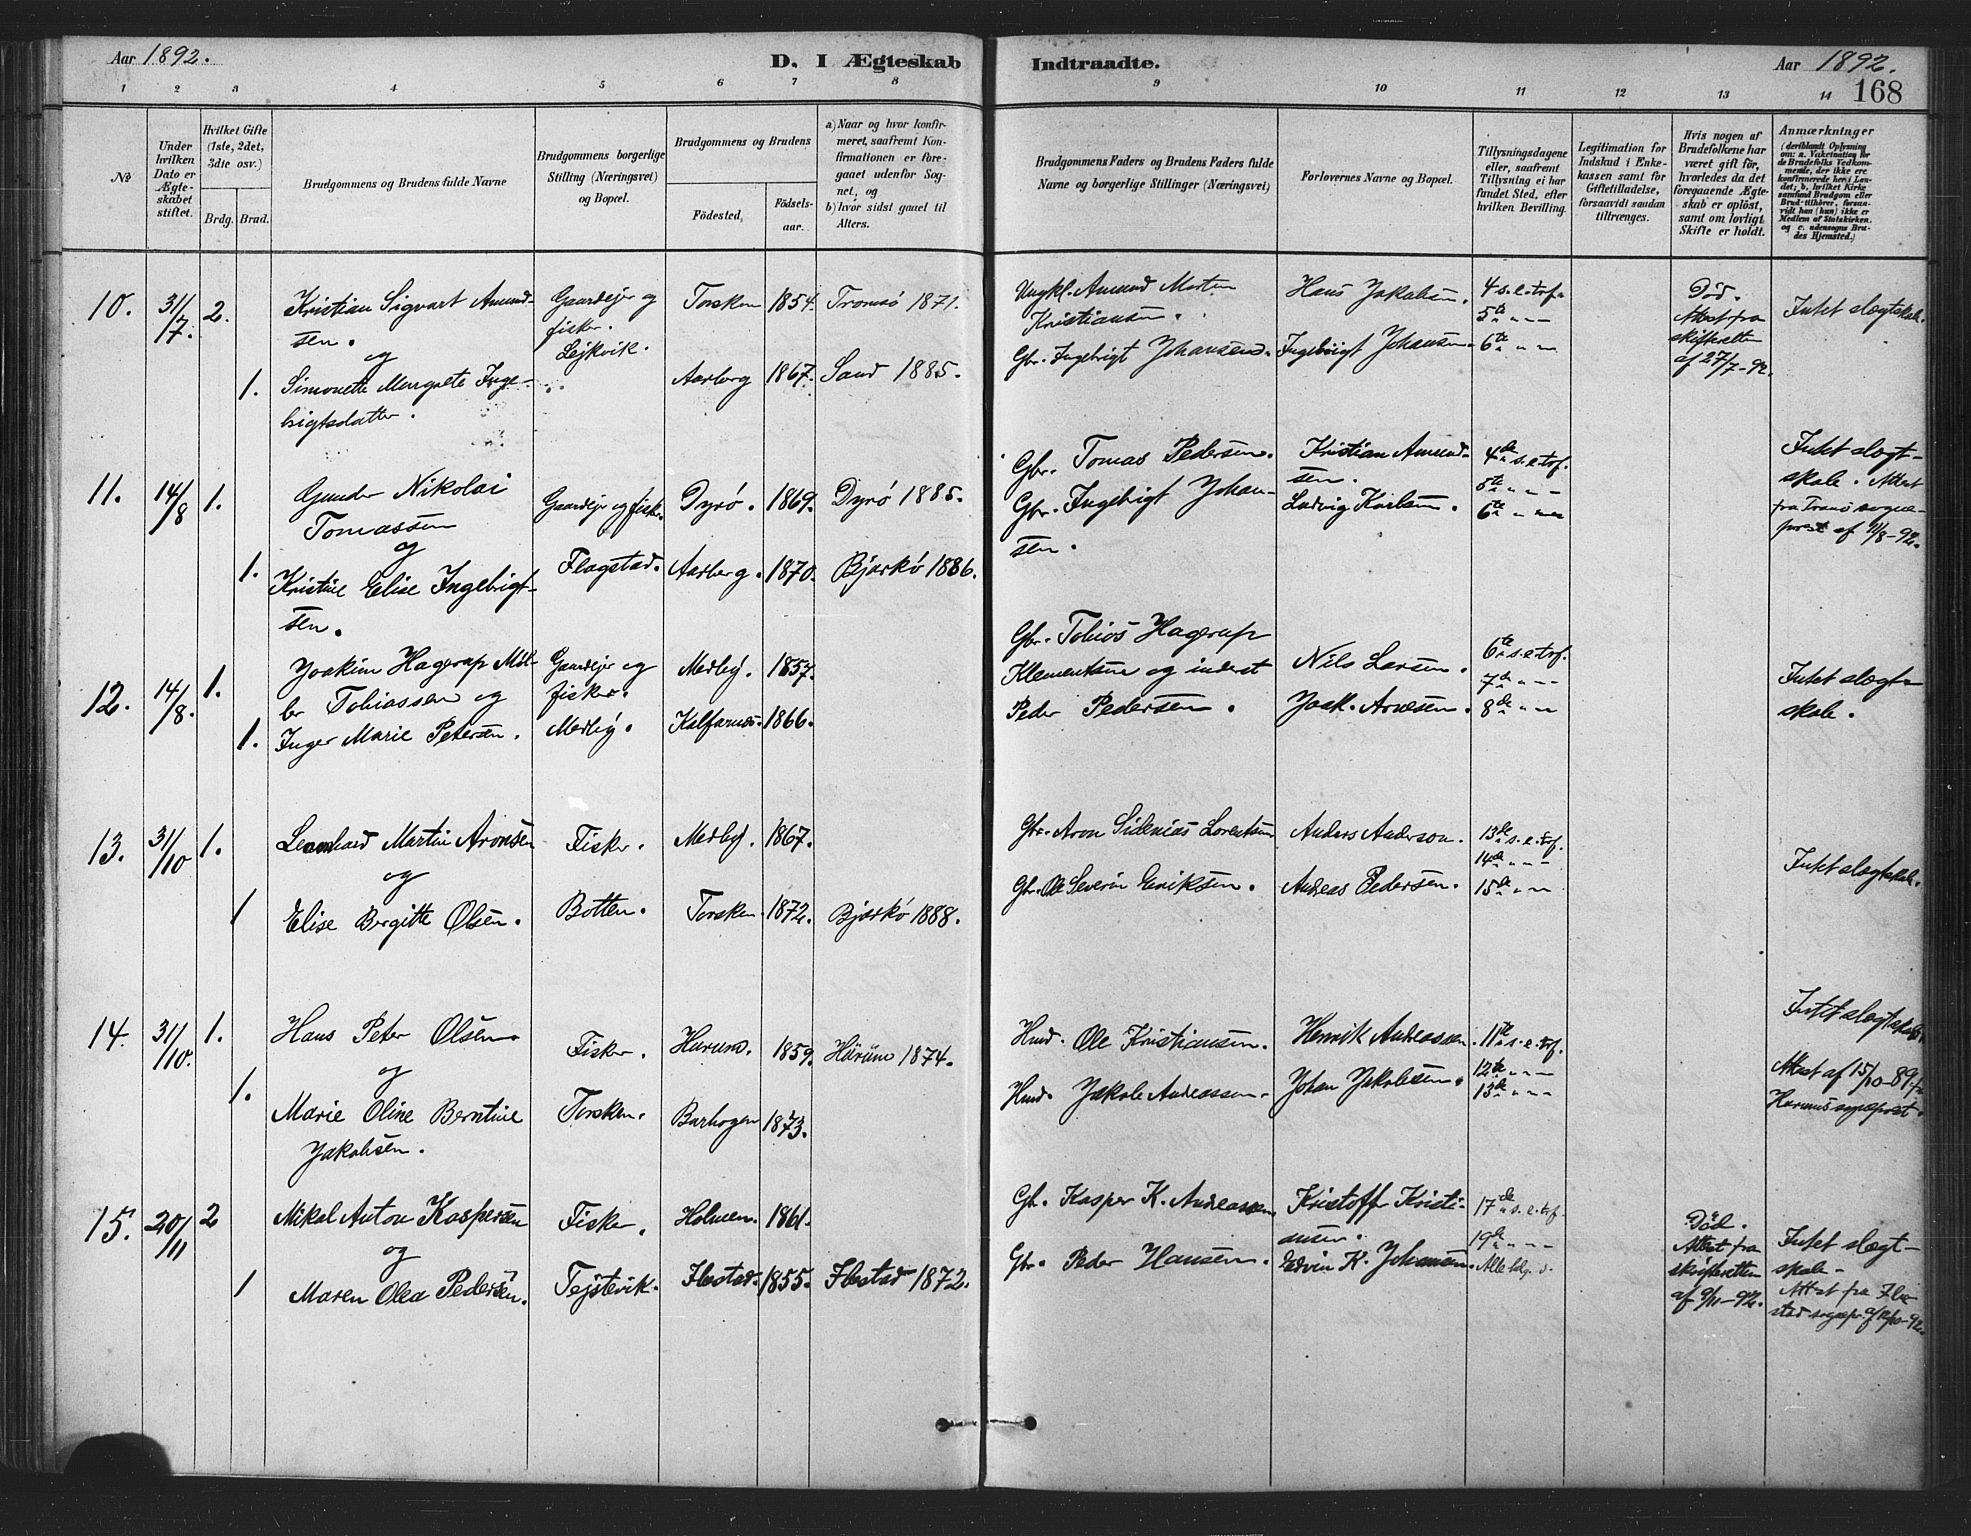 Aar 1892.
D. I Ægteskab Indtraadte.
Aar 1892.
168
1 2 3 4 5 6 7 8 9 10 11 12 13 14
No
Under hvilken Dato er Ægteskabet stiftet.
Hvilket Gifte (1ste, 2det, 3die osv.)
Brdg. Brud.
Brudgommens og Brudens fulde Navne
Brudgommens borgerlige Stilling (Næringsvei) og Bopæl.
Brudgommens og Brudens
Fødested,
Fødsels-aar.
a) Naar og hvor konfirmeret, saafremt Konfirmationen er foregaaet udenfor Sognet, og
b) hvor sidst gaaet til Alters.
Brudgommens Faders og Brudens Faders fulde Navne og borgerlige Stillinger (Næringsvei)
Forlovernes Navne og Bopæl.
Tillysningsdagene eller, saafremt Tillysning ei har fundet Sted, efter hvilken Bevilling.
Legitimation for Indskud i Enkekassen samt for Giftetilladelse, forsaavidt saadan tiltrænges.
Hvis nogen af Brudefolkene har været gift før, hvorledes da det foregaaende Ægteskab er opløst, samt om lovligt Skifte er holdt.
Anmærkninger
(deriblandt Oplysning om: a. Vakcination for de Brudefolks Vedkommende, der ikke ere konfirmerede her i Landet; b. hvilket Kirkesamfund Brudgom eller Brud tilhører, forsaavidt han (hun) ikke er Medlem af Statskirken, og c. udensogns Brudes Hjemsted.)
10. 31/7. 2. Kristian Sigvart Amund-
sen.
og
1. Simonette Margrete Inge-
brigtsdatter.
Gaardejer og
fisker.
Lejkvik.
Torsken 1854. Tromsø 1871.
Aarberg 1867. Sand 1885.
Ungkl. Amund Morten
Kristiansen.
Gbr. Ingebrigt Johansen.
Hans Jakobsen.
Ingebrigt Johansen.
4 s. e. tref.
5te " " "
6te " " "
Død.
Attest fra
skifteretten
af 27/7-92.
Intet slægtskab.
11. 14/8 1. Gunder Nikolai
Tomassen
og
1. Kristine Elise Ingebrigt-
sen.
Gaardejer og fisker
Flagstad.
Dyrø. 1869. Dyrø 1885.
Aarberg. 1870. Bjarkø 1886.
Gbr. Tomas Pedersen.
Gbr. Ingebrigt Johan-
sen.
Kristian Amund-
sen.
Ludvig Karlsen.
4de s. e. tref.
5te " " "
6te " " "
Intet slægt-
skab. Attest
fra Tranø sogne-
prest af 11/8-92.
12. 14/8. 1. Joakim Hagerup Mel-
ler Tobiassen og
1. Inger Marie Petersen.
Gaardejer og
fisker.
Medby.
Medby. 1857.
Kalfarnes. 1866.
Gbr. Tobias Hagerup
Klementsen og inderst
Peder Pedersen.
Nils Larsen.
Joak. Arnesen.
6te s. e. tref.
7de " " "
8de " " "
Intet slægt-
skab.
13. 31/10 1. Leonhard Martin Aronsen
og
1 Elise Bergitte Olsen.
Fisker.
Botten.
Medby. 1867.
Torsken. 1872. Bjarkø 1888.
Gbr. Aron Sidenius Lorentsen
Gbr. Ole Severin Eriksen.
Anders Anderson.
Andreas Pedersen.
13de s. e. tref.
14de " " "
15de " "
Intet slægtskab.
14. 31/10. 1. Hans Peter Olsen
og
1. Marie Oline Berntine
Jakobsen.
Fisker.
Torsken.
Harum. 1859. Harum 1874.
Barhogen 1873.
Hmd. Ole Kristiansen.
Hmd. Jakob Andreassen.
Henrik Andreassen.
Johan Jakobsen.
11te s. e. tref.
12te " " "
13de " " "
Intet slægtskab
Attest af 15/10-89 fr
Harums sogneprest.
15. 20/11 2 Mikal Anton Kaspersen
og
1 Maren Olea Pedersen.
Fisker.
Tejstevik.
Holmen. 1861.
Ibestad. 1855. Ibestad 1872.
Gb. Kasper K. Andreassen
Gbr. Peder Hansen.
Kristoffer Kristi-
ansen.
Edvin K. Johansen.
17de s. e. tref.
19de " " "
Alle hlg. d.
Død.
Attest fra
skifteretten
af 9/11-92.
Intet slægt-
skab.
Attest fra Ibe-
stad sognepr. af 12/10-92.